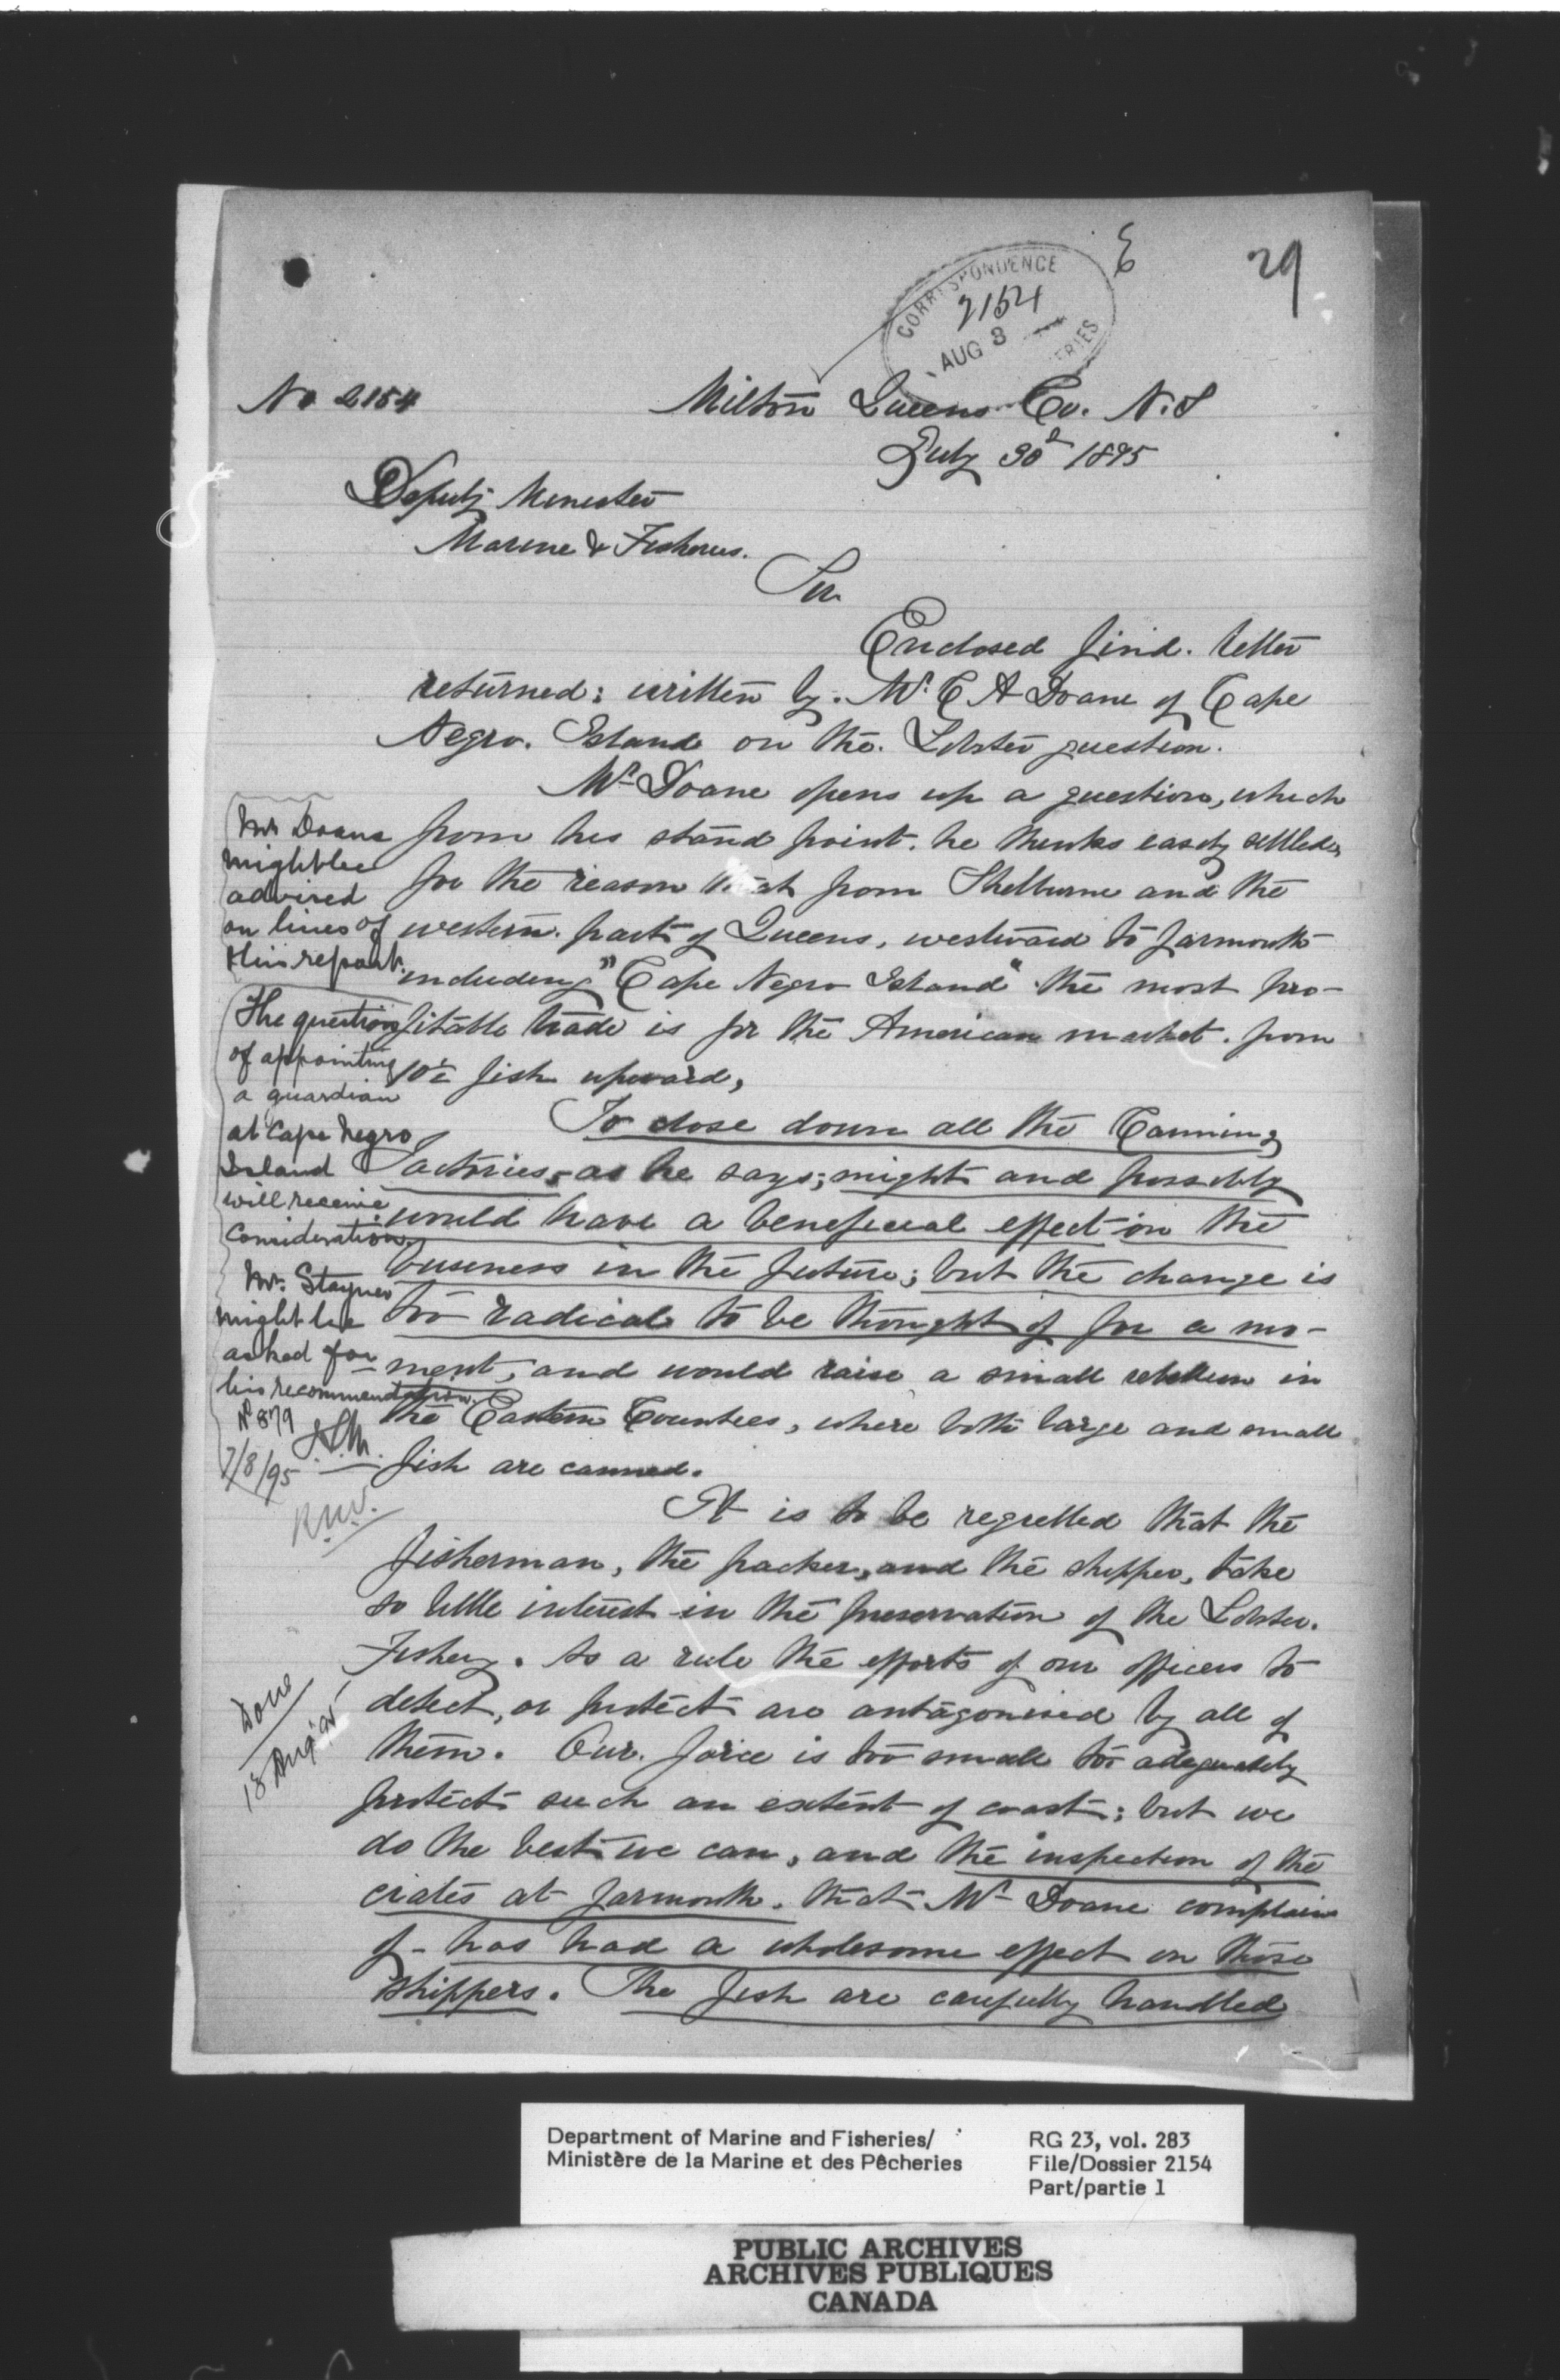 E
29
CORRESPONDENCE
2154
AUG 3
FISHERIES
No 2154
Milton Queens Co. N.S
July 30th 1895
Deputy Minister
Marine & Fisheries.
Sir
Enclosed find. letter
returned; written by. Mr. C A Doane of Cape
Negro. Island on the. Lobster question.
Mr Doane opens up a question, which
from his stand point. he thinks easily settled,
for the reason that from Shelburne and the
western. part of Queens, westward to Yarmouth
including "Cape Negro Island" the most pro-
fitable trade is for the American market. from
10½ fish upward,
To close down all the Canning
Factories, as he says; might and possibly
would have a beneficial effect in the
business in the future; but the change is
too radical to be thought of for a mo-
ment, and would raise a small rebellion in
the Eastern Counties, where both large and small
fish are canned.
It is to be regretted that the
fisherman, the packer, and the shipper, take
so little interest in the preservation of the Lobster.
Fishery. As a rule the efforts of our officers to
detect, or protect are antagonised by all of
them. Our. force is too small to adequately
protect such an extent of coast; but we
do the best we can, and the inspection of the
crates at Yarmouth. that Mr Doane complains
of - has had a wholesome effect on those
shippers. The fish are carefully handled
Mr Doane
might be
advised
on lines of
this report.
The question
of appointing
a guardian
at Cape Negro
Island
will receive
consideration.
Mr. Stayner
might be
asked for
his recommendation.
No 879
7/8/95
R.N.V.
Done
13 Aug '95
Department of Marine and Fisheries/
Ministère de la Marine et des Pêcheries
RG 23, vol. 283
File/Dossier 2154
Part/partie 1
PUBLIC ARCHIVES
ARCHIVES PUBLIQUES
CANADA